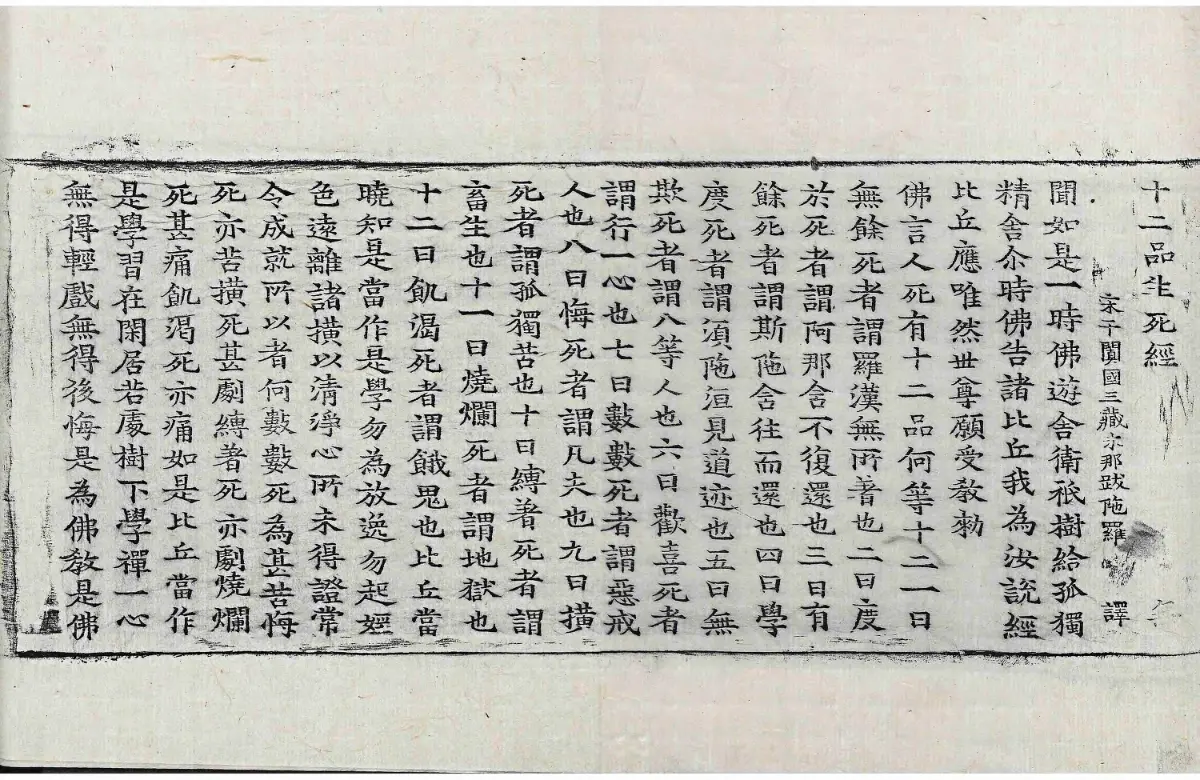 十二品生死經
宋于闐國三藏求那跋陁羅 譯
聞如是一時佛遊舍衛祇樹給孤獨
精舍尒時佛告諸比丘我為汝說經
比丘應唯然世尊願受教勑
佛言人死有十二品何等十二一曰
無餘死者謂羅漢無所著也二曰度
於死者謂阿那舍不復還也三曰有
餘死者謂斯陁舍往而還也四曰學
度死者謂湏陁洹見道迹也五曰無
欺死者謂八等人也六曰歡喜死者
謂行一心也七曰數數死者謂惡戒
人也八曰悔死者謂凡夫也九曰撗
死者謂孤獨苦也十曰縛著死者謂
畜生也十一曰燒爛死者謂地獄也
十二曰飢渴死者謂餓鬼也比丘當
曉知是當作是學勿為放逸勿起婬
色遠離諸撗以清淨心所未得證常
令成就所以者何數數死為甚苦悔
死亦苦撗死甚劇縛著死亦劇燒爛
死甚痛飢渴死亦痛如是比丘當作
是學習在閑居若處樹下學禪一心
無得輕戲無得後悔是為佛教是佛